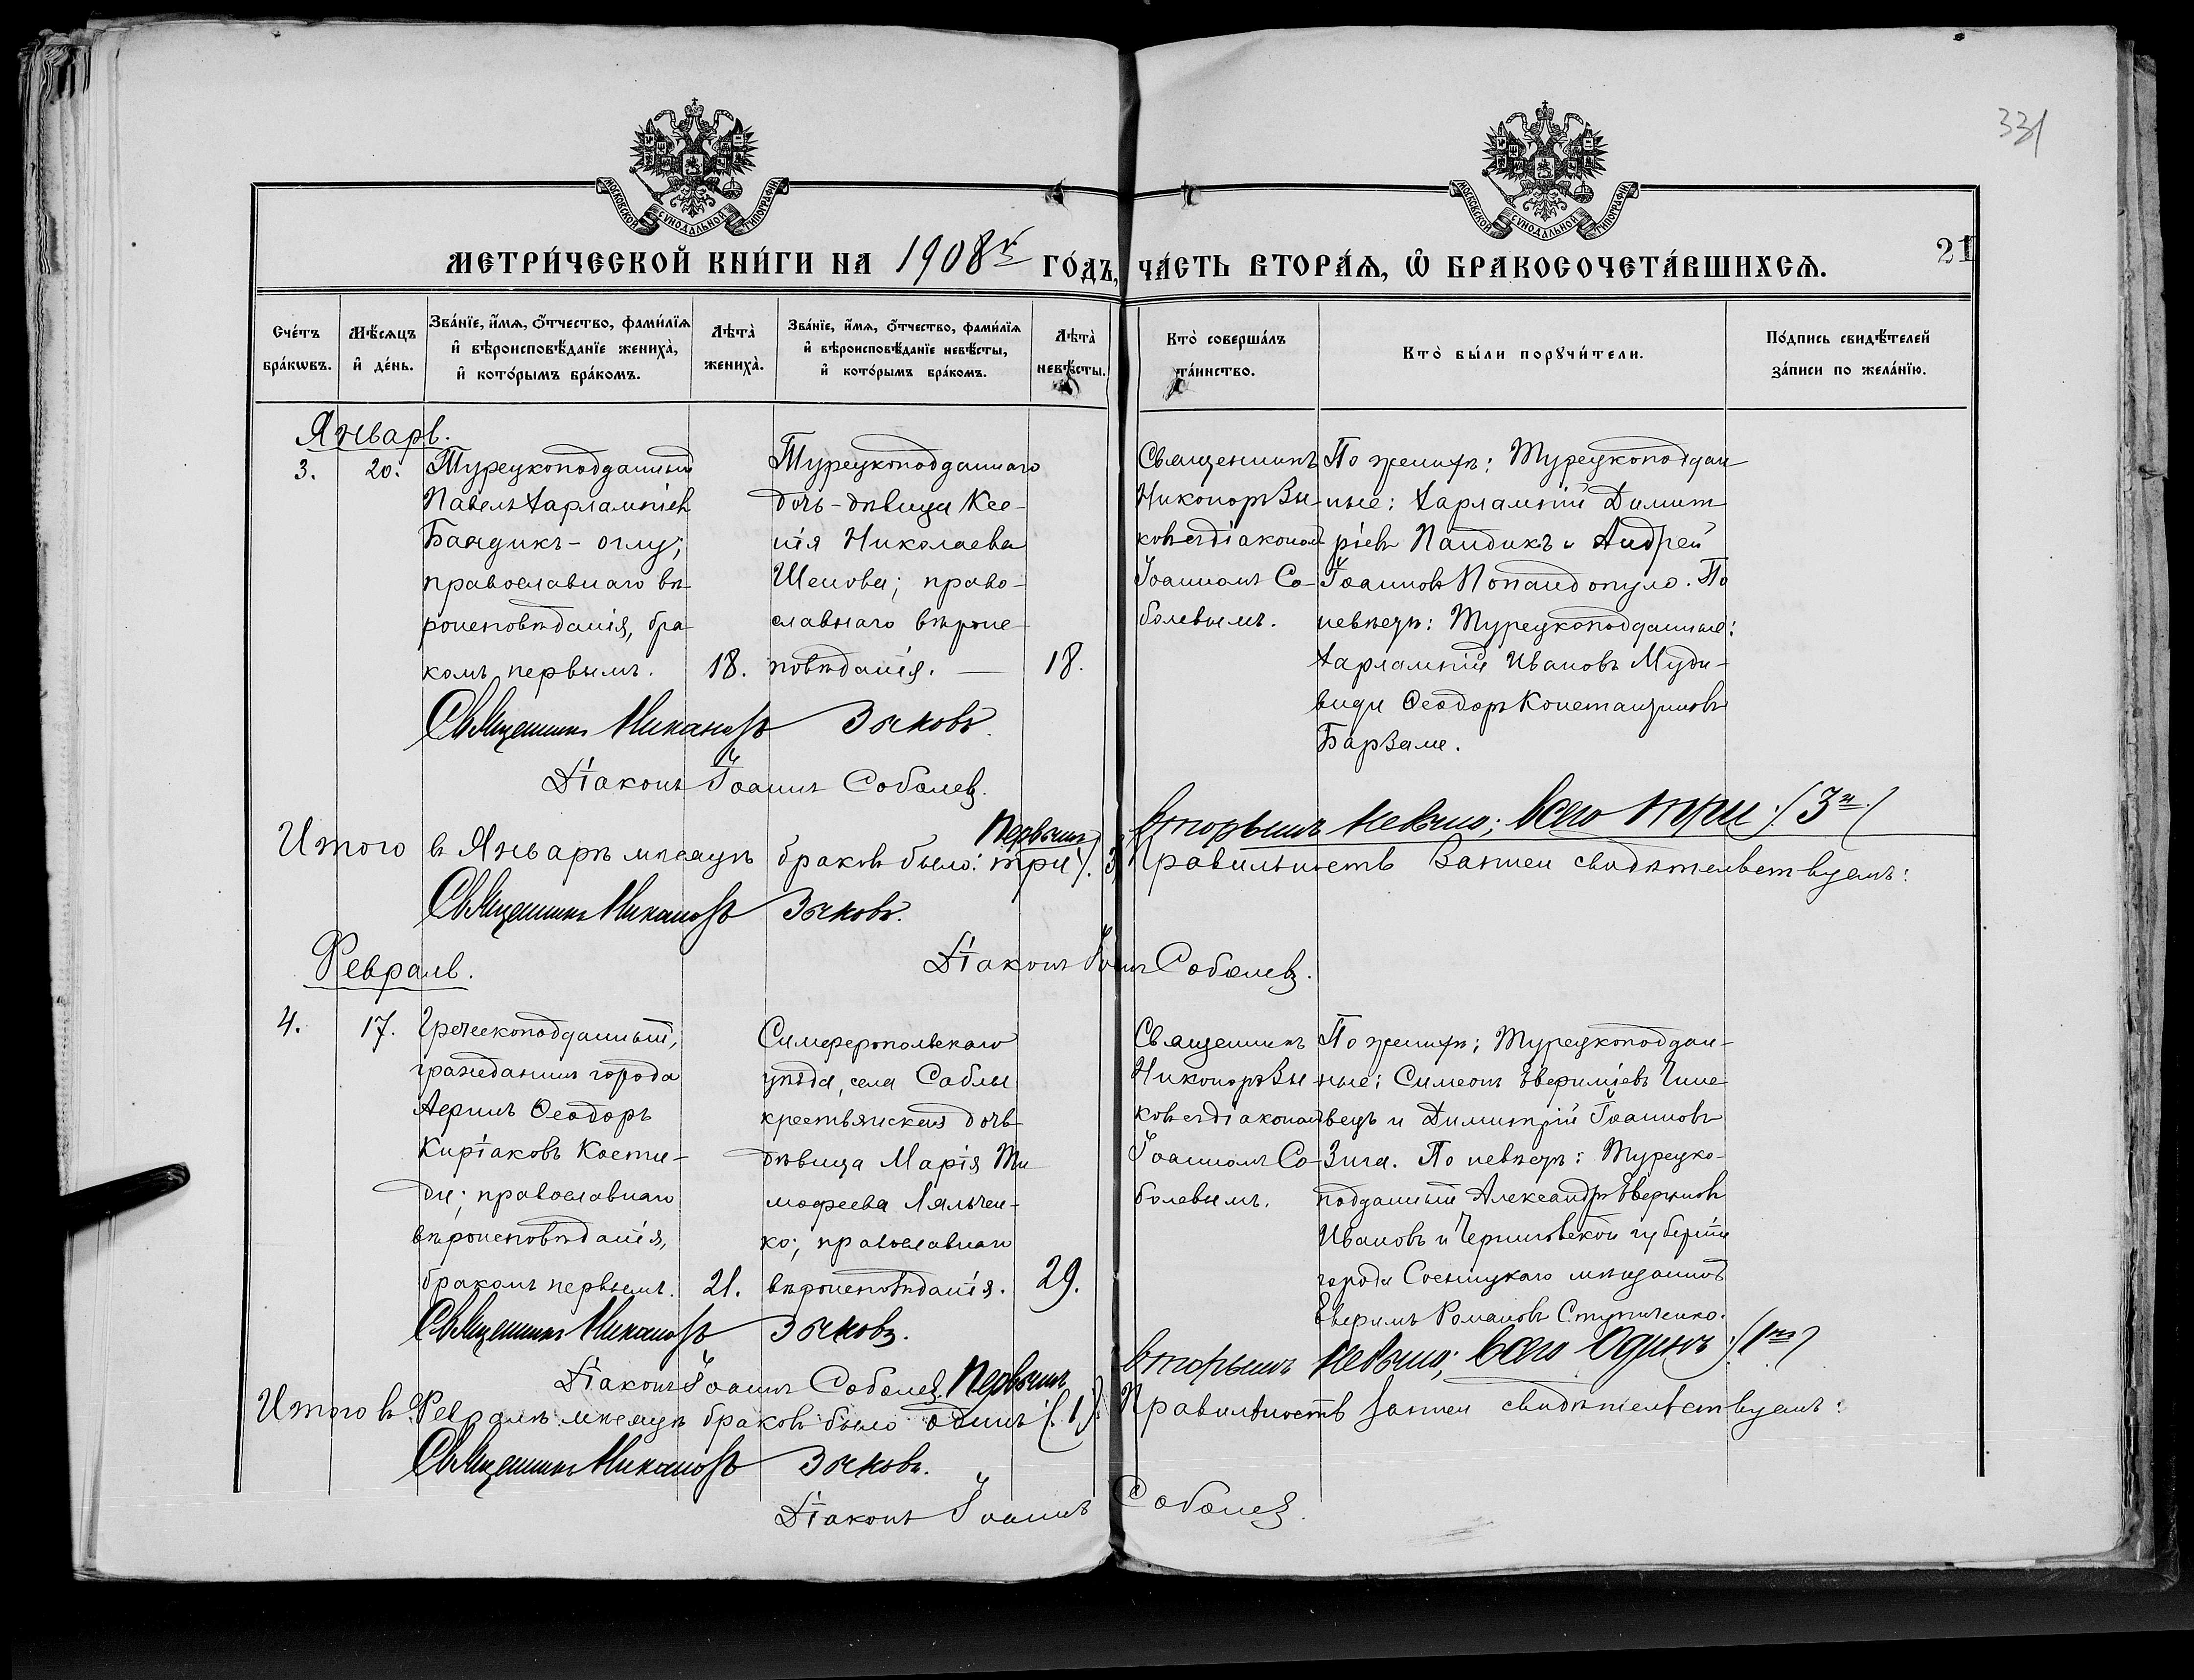 331
МОСКОВСКОЙ СУНОДАЛЬНОЙ ТИПОГРАФІИ
МОСКОВСКОЙ СУНОДАЛЬНОЙ ТИПОГРАФІИ
МЕТРИ́ЧЕСКОЙ КНИ́ГИ НА 1908й ГО́ДЪ, ЧА́СТЬ ВТОРА́Ѧ, Ѽ БРАКОСОЧЕТА́ВШИХСѦ.
21
Сче́тъ
бра́кωвъ.
Мѣ́сѧцъ
и҆ де́нь.
Зва́нїе, и҆́мѧ, ѻ҆́тчество, фами́лїѧ
и҆ вѣроисповѣ́данїе жениха̀,
и҆ кото́рымъ бра́комъ.
Лѣта̀
жениха̀.
Зва́нїе, и҆́мѧ, ѻ҆́тчество, фами́лїѧ
и҆ вѣроисповѣ́данїе невѣ́сты,
и҆ кото́рымъ бра́комъ.
Лѣта̀
невѣ́сты.
Кто̀ соверша́лъ
та́инство.
Кто̀ бы́ли порꙋчи́тели.
По́дпись свидѣ́телей
за́писи по жела́нїю.
Январь.
3.
20.
Турецкоподданный
Павелъ Харлампіев
Бандикъ-оглу;
православнаго вѣ-
роисповѣданія, бра-
комъ первымъ.
18.
Турецкоподданнаго
дочь-дѣвица Ксе-
нія Николаева
Шенова; право-
славнаго вѣроис-
повѣданія. —
18.
Священникъ
Никоноръ Зы-
ковъ съ діакономъ
Іоанномъ Со-
болевымъ.
По женихѣ: Турецкоподдан-
ные: Харлампій Димит-
ріевъ Пандикъ и Андрей
Іоанновъ Попандопуло. По
невѣстѣ: Турецкоподданные:
Харлампій Ивановъ Муди-
Ѳеодоръ Константиновъ
Священникъ Никаноръ Зыковъ.
Діаконъ Іоаннъ Соболевъ.
Итого въ Январѣ мѣсяцѣ браковъ было: первымъ три /. 3
вторымъ не было; всего три ./ 3и /
Правильность записи свидѣтельствуемъ:
Священникъ Никаноръ Зыковъ.
Діаконъ Іоаннъ Соболевъ.
Февраль.
4.
17.
Греческоподданный,
гражданинъ города
Ѳеодоръ
Киріаковъ Кости-
ди; православнаго
вѣроисповѣданія,
бракомъ первымъ.
21.
Симферопольскаго
уѣзда, села Саблы
крестьянская дочь
дѣвица Марія Ти-
мофеева Ляльчен-
ко; православнаго
вѣроисповѣданія.
29.
Священникъ
Никоноръ Зы-
ковъ съ діакономъ
Іоанномъ Со-
болевымъ.
По женихѣ: Турецкоподдан-
ные: Симеонъ Евѳиміевъ
и Димитрій Іоанновъ
Зига. По невѣстѣ: Турецко-
подданный Александръ
Ивановъ и Черниговской губерніи
города Сосницкаго мѣщанинъ
Евѳимъ Романовъ Ступиченко.
Священникъ Никаноръ Зыковъ.
Діаконъ Іоаннъ Соболевъ.
Итого въ Февралѣ мѣсяцѣ браковъ было первымъ одинъ (. 1.)
вторымъ не было; всего одинъ ./ 1нъ /
Правильность записи свидѣтельствуемъ:
Священникъ Никаноръ Зыковъ.
Діаконъ Іоаннъ Соболевъ.